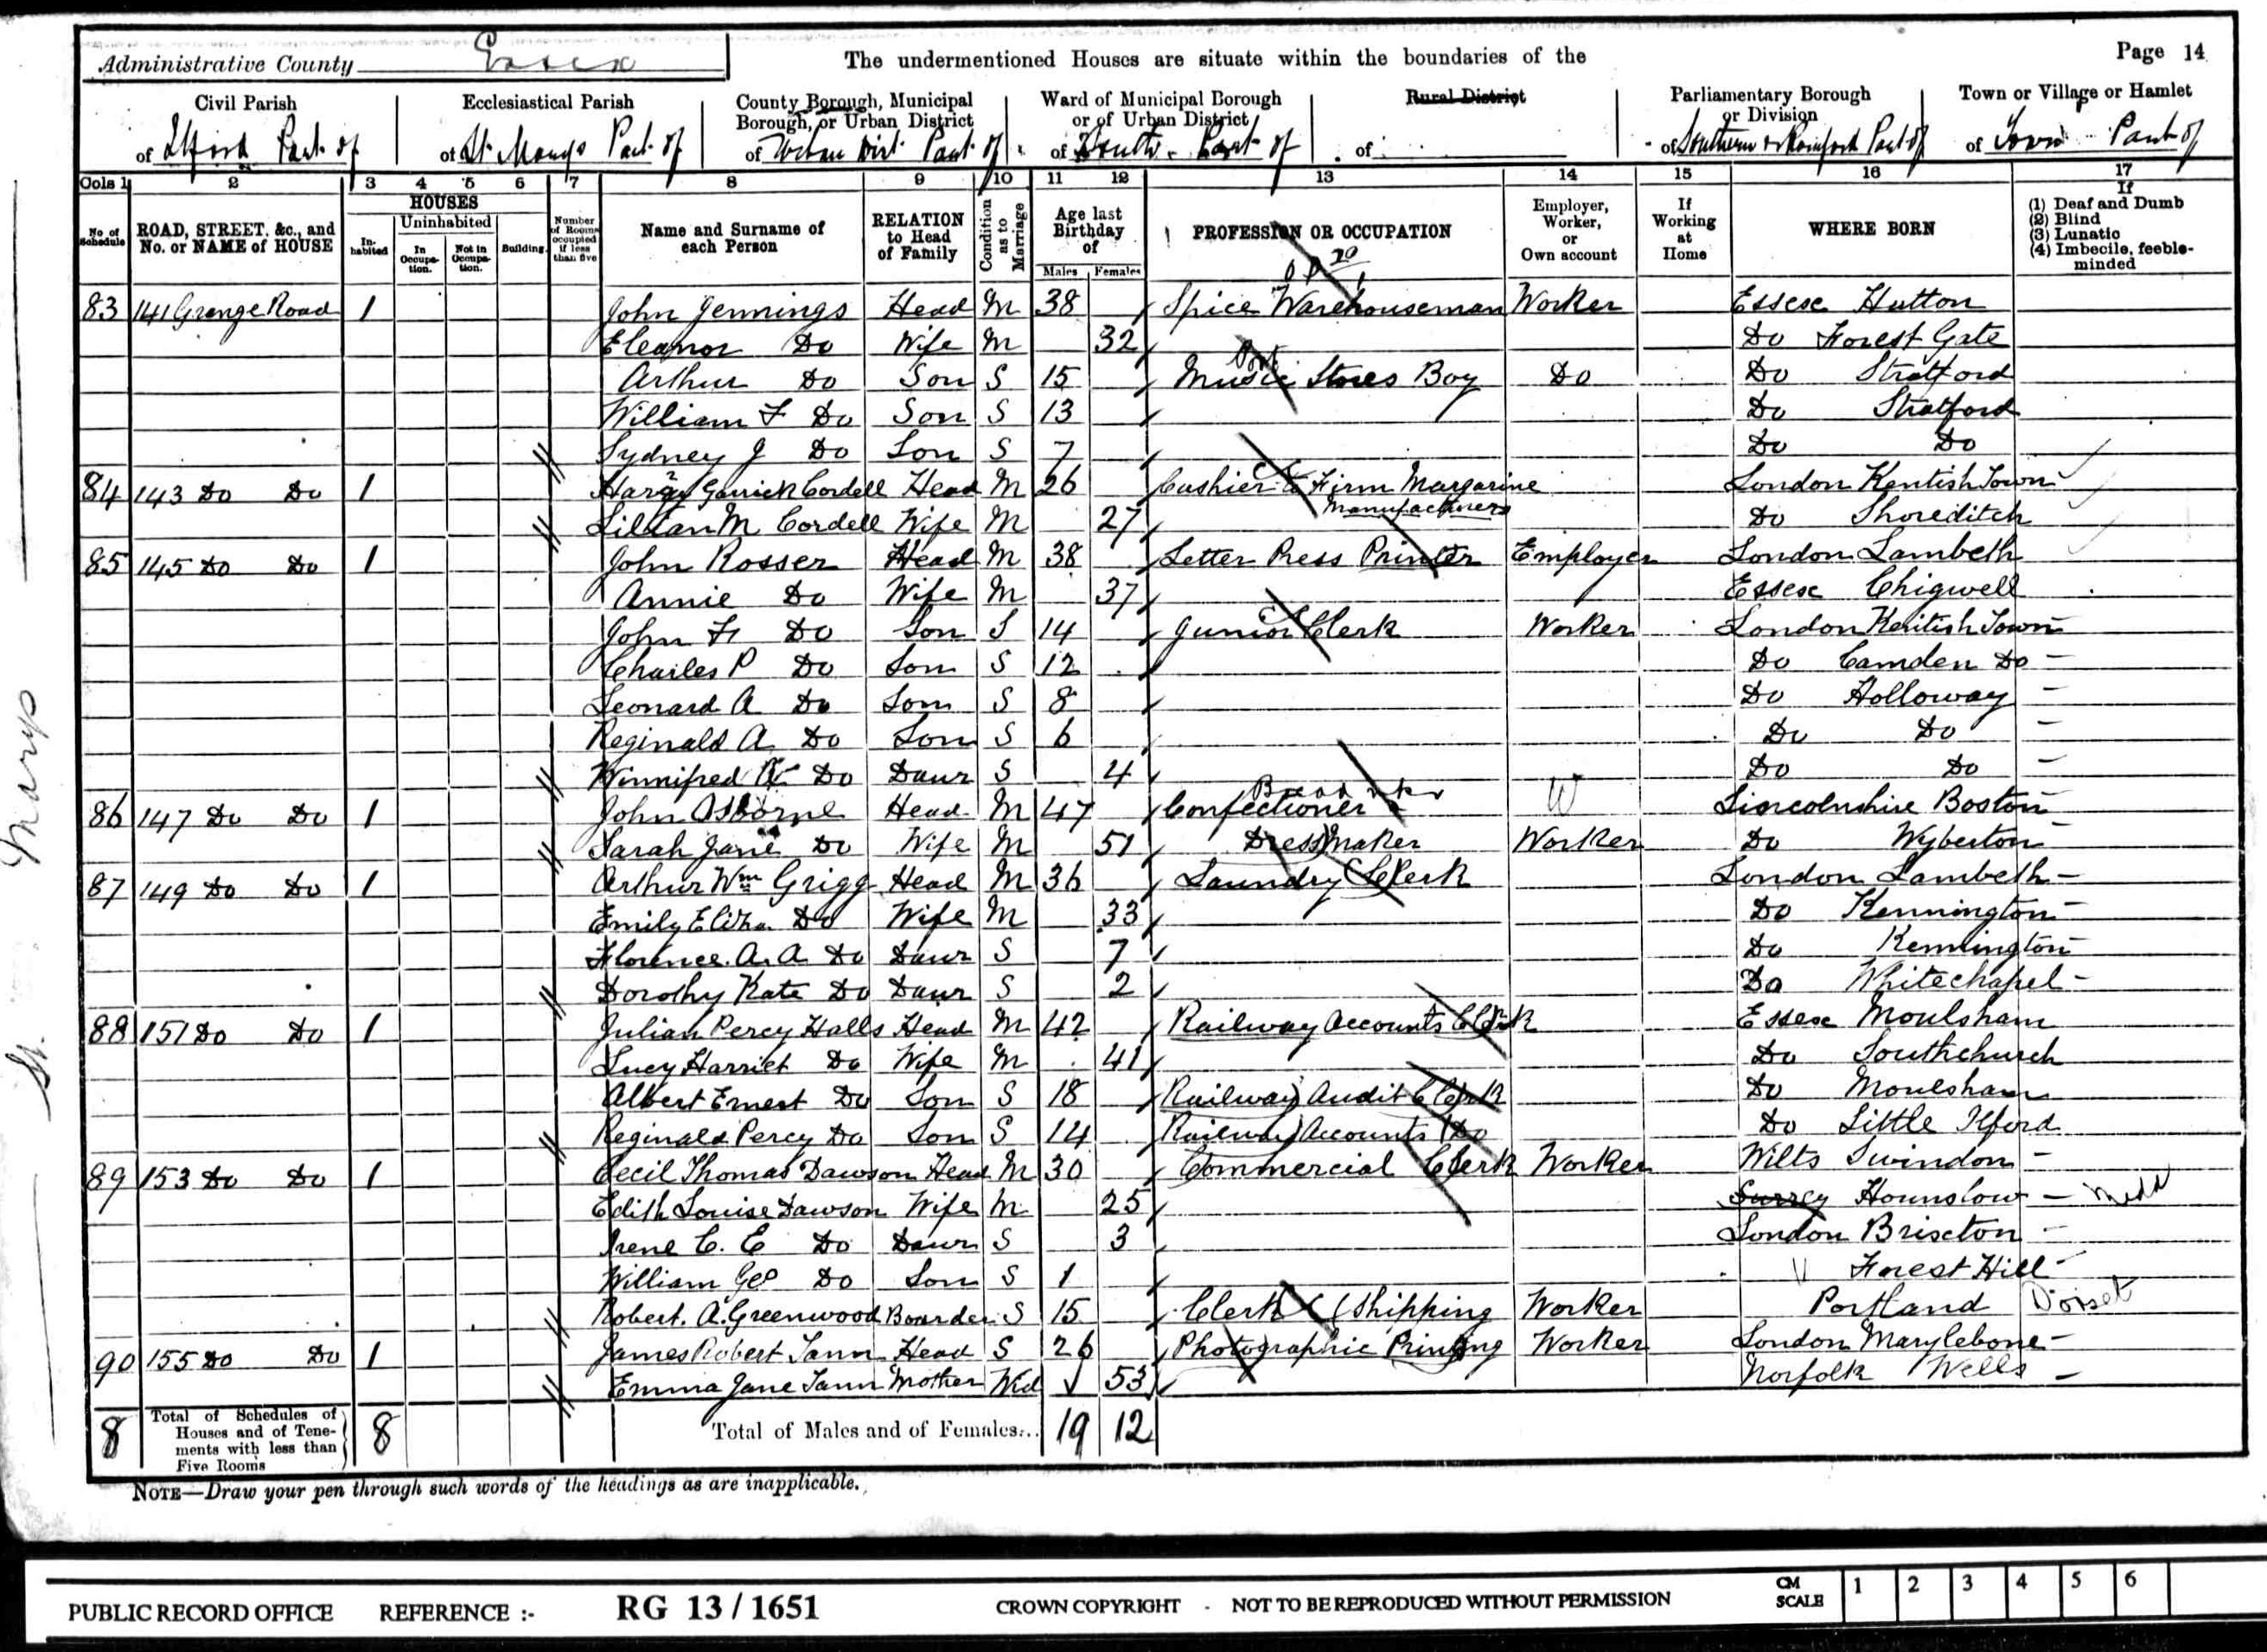 Administrative County Essex The undermentioned Houses are situate within the boundaries of the Page 14
Civil Parish Ecclesiastical Parish County Borough, Municipal Borough, or Urban District Ward of Municipal Borough or of Urban District Rural District Parliamentary Borough or Division Town or Village or Hamlet
of Ilford Part of of St. Marys Part of of Urban Dist. Part of of South Part of of of Southern or Romford Part of of Town Part of
Cols 1 2 3 4 5 6 7 8 9 10 11 12 13 14 15 16 17
No. of Schedule ROAD, STREET, &c., and No. or NAME of HOUSE HOUSES Inhabited Uninhabited In Occupation. Not in Occupation. Building. Number of Rooms occupied if less than five Name and Surname of each Person RELATION to Head of Family Condition as to Marriage Age last Birthday of Males Females PROFESSION OR OCCUPATION Employer, Worker, or Own account If Working at Home WHERE BORN If (1) Deaf and Dumb (2) Blind (3) Lunatic (4) Imbecile, feeble-minded
83 141 Grange Road 1 John Jennings Head M 38 Spice Warehouseman Worker Essex Hutton
Eleanor Do Wife M 32 Do Forest Gate
Arthur Do Son S 15 Music Stores Boy Do Do Stratford
William F Do Son S 13 Do Stratford
Sydney J Do Son S 7 Do Do
84 143 Do Do 1 Harry Garrick Cordell Head M 26 Cashier to Firm Margarine Manufacturers London Kentish Town
Lillian M Cordell Wife M 27 Do Shoreditch
85 145 Do Do 1 John Rosser Head M 38 Letter Press Printer Employer London Lambeth
Annie Do Wife M 37 Essex Chigwell
John F Do Son S 14 Junior Clerk Worker London Kentish Town
Charles P Do Son S 12 Do Camden Do
Leonard A Do Son S 8 Do Holloway
Reginald A Do Son S 6 Do Do
Winnifred Do Daur S 4 Do Do
86 147 Do Do 1 John Osborne Head M 47 Confectioner W Lincolnshire Boston
Sarah Jane Do Wife M 51 Dressmaker Worker Do Wyberton
87 149 Do Do 1 Arthur Wm Grigg Head M 36 Laundry Clerk London Lambeth
Emily Eliza Do Wife M 33 Do Kennington
Florence. A. A Do Daur S 7 Do Kennington
Dorothy Kate Do Daur S 2 Do Whitechapel
88 151 Do Do 1 Julian Percy Halls Head M 42 Railway Accounts Clerk Essex Moulsham
Lucy Harriet Do Wife M 41 Do Southchurch
Albert Ernest Do Son S 18 Railway Audit Clerk Do Moulsham
Reginald Percy Do Son S 14 Railway Accounts Do Do Little Ilford
89 153 Do Do 1 Cecil Thomas Dawson Head M 30 Commercial Clerk Worker Wilts Swindon
Edith Louise Dawson Wife M 25 Surrey Hounslow Midd
Irene C. E Do Daur S 3 London Brixton
William Geo Do Son S 1 " Forest Hill
Robert. A. Greenwood Boarder S 15 Clerk (Shipping Worker Portland Dorset
90 155 Do Do 1 James Robert Tann Head S 26 Photographic Printing Worker London Marylebone
Emma Jane Tann Mother Wid 53 Norfolk Wells
8 Total of Schedules of Houses and of Tenements with less than Five Rooms 8 Total of Males and of Females... 19 12
NOTE—Draw your pen through such words of the headings as are inapplicable.
St. Marys
PUBLIC RECORD OFFICE REFERENCE :- RG 13 / 1651 CROWN COPYRIGHT - NOT TO BE REPRODUCED WITHOUT PERMISSION CM SCALE 1 2 3 4 5 6